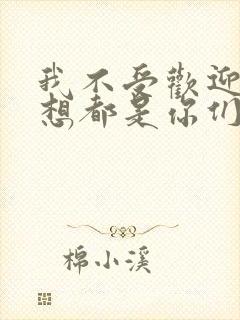 我不受歡迎
想都是你们
棉小溪